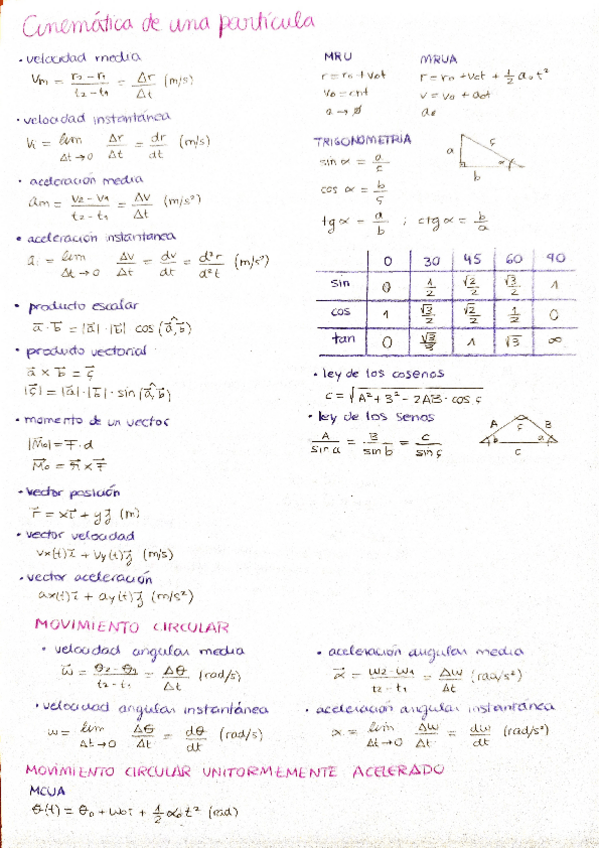 Cinemática de una partícula
• velocidad media
Vm = r₂ - r₁ / t₂ - t₁ = Δr / Δt (m/s)
• velocidad instantánea
Vi = lim Δt→0 Δr / Δt = dr / dt (m/s)
• aceleración media
am = v₂ - v₁ / t₂ - t₁ = Δv / Δt (m/s²)
• aceleración instantanea
ai = lim Δt→0 Δv / Δt = dv / dt = d²r / d²t (m/s²)
• producto escalar
a⃗ · b⃗ = |a⃗| · |b⃗| cos (a,b)
• producto vectorial
a⃗ x b⃗ = c⃗
|c⃗| = |a⃗| · |b⃗| · sin (a,b)
• momento de un vector
|M⃗o| = F · d
M⃗o = r⃗ x F⃗
• vector posición
r⃗ = xi⃗ + yj⃗ (m)
• vector velocidad
vx(t)i⃗ + vy(t)j⃗ (m/s)
• vector aceleración
ax(t)i⃗ + ay(t)j⃗ (m/s²)
MRU
r = r₀ + v₀t
v₀ = cnt
a → ∅
MRUA
r = r₀ + v₀t + 1/2 a₀t²
v = v₀ + a₀t
a₀
TRIGONOMETRIA
sin α = a / c
cos α = b / c
tg α = a / b ; ctg α = b / a
a c α
b
0 30 45 60 90
sin 0 1/2 √2/2 √3/2 1
cos 1 √3/2 √2/2 1/2 0
tan 0 √3/3 1 √3 ∞
• ley de los cosenos
c = √A² + B² - 2AB · cos ç
• ley de los senos
A / sin a = B / sin b = C / sin ç
A ç B
b a
C
MOVIMIENTO CIRCULAR
• velocidad angular media
ω⃗ = θ₂ - θ₁ / t₂ - t₁ = Δθ / Δt (rad/s)
• aceleración angular media
α⃗ = ω₂ - ω₁ / t₂ - t₁ = Δω / Δt (rad/s²)
• velocidad angular instantánea
ω = lim Δt→0 Δθ / Δt = dθ / dt (rad/s)
• aceleración angular instantánea
α = lim Δt→0 Δω / Δt = dω / dt (rad/s²)
MOVIMIENTO CIRCULAR UNIFORMEMENTE ACELERADO
MCUA
θ(t) = θ₀ + ω₀t + 1/2 α₀t² (rad)